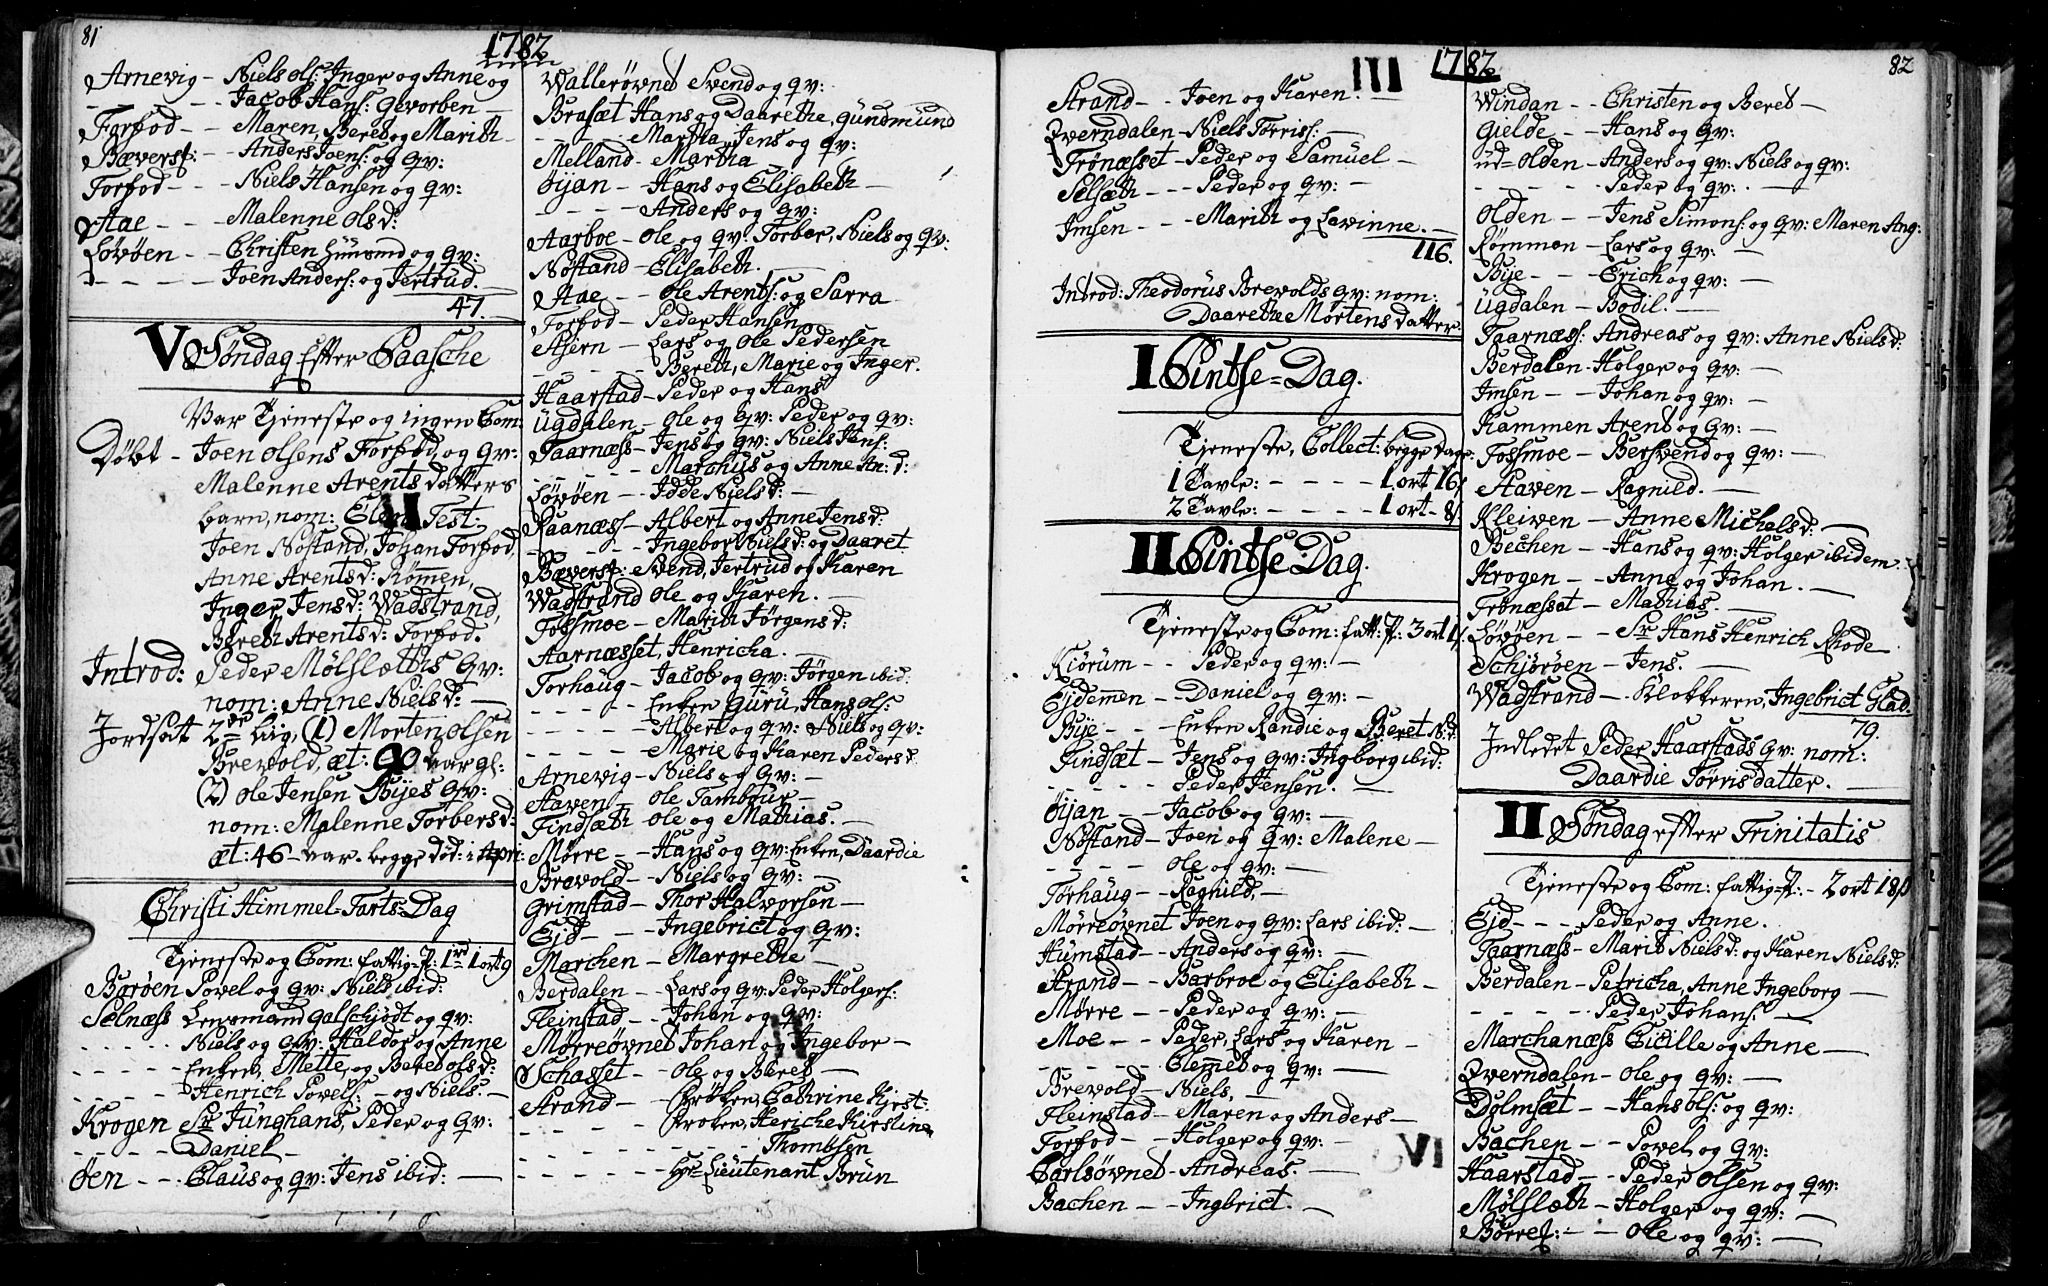 81
1782
Arnevig - Niels Ols: Inger og Anne og
- - - Jacob Hans: Gevorben -
Forfod - - Maren, Beret og Marith -
Bæverf: - Anders Joens: og qv:
Forfod - - - Niels Hansen og qv:
Aae - - - Malenne Olsd:
Løvøen - - Christen Gunmund og qv:
- - - - - Joen Anders: og Jertrud.
47.
V Søndag Efter Paasche
Var Tjeneste og ingen Com:
Døbt - Joen Olsens Forfod, og qv:
Malenne Arentsdatters
barn, nom: Elen Test:
Joen Nøstand, Johan Forfod,
Anne Arentsd: Rømen,
Inger Jensd: Wadstrand,
Bereth Arentsd: Forfod.
Introd: Peder Mølslettis qv:
nom: Anne Nielsd: -
Jordsat 2de Liig, (1) Morten Olsen
Brevold, æt: 90 var gl:
(2) Ole Jensen Byes qv:
nom: Malenne Torbersd:
æt: 46 - var. begge død: i Apri:
Christi Himmel-Farts-Dag
Tjeneste og Com: fattig-P: 1 rd 1 ort 9
Barøen Povel og qv: Niels ibid:
Selnæss Lensmand Galschjødt og qv:
- - - - - Niels og qv: Haldor og Anne
- - - - - Enken, Mette, og Beret Olsd:
- - - - - Henrich Povels: - og Niels. -
Krogen Sr Junghans, Peder og qv:
- - - - - Daniel -
Øen - - - Claus og qv: Jens ibid: -
Wallerøvnet Svend og qv:
Brasæt Hans og Daarethe, Gundmund
- - - - Martha, Jens og qv:
Melland - Martha
Øijan - - Hans og Elisabeth -
- - - - - Anders og qv:
Aarboe - Ole og qv: Torber, Niels og qv:
Nøstand - Elisabeth.
Aae - - Ole Arents: og Sarra
Forfod - Peder Hansen
Asern - Lars og Ole Pedersen
- - - - - Bereth, Marie og Inger.
Haarstad - Peder og Hans
Ugdalen - Ole og qv: Peder og qv:
Taarnæss - Jens og qv: Niels Jens:
- - - - - Marchus og Anne An: d:
Løvøen - - Idde Nielsd: -
Raanæss - Albert og Anne Jensd:
- - - - - Ingebor Nielsd: og Daaret
Bæverf: - Svend, Jertrud og Karen
Wadstrand Ole og Karen. -
Fossmoe - Marith Jørgensd:
Aarnæsset, Henricha. -
Torhaug - Jacob og qv: Jørgen ibid:
- - - - - Enken Guru, Hans Ols:
- - - - - Albert og qv: Niels og qv:
- - - - - Marie og Karen Pedersd:
Arnevig - Niels og qv: -
Staven - Ole Tambur -
Findsæth Ole og Mathias. -
Mørre - - Hans og qv: Enken, Daardie
Brevold - Niels og qv: -
Grimstad - Thor Halvorsen -
Ejd - - - Ingebrict og qv:
Marchen - Margrethe -
Berdalen - Lars og qv: Peder Holgers:
Fleinstad - Johan og qv:
Mørreøvnet Johan og Ingebor -
Schasset - Ole og Beret -
Strand - - Frøken, Cathrine Kjest:
- - - - - Frøken, Heriche Kirstine
- - - - - Thombsen
- - - - - Hr: Lieutenant Brun
III
1782
82
Strand - - Joen og Karen. -
Qverndalen - Niels Torriss: -
Trønæsset - Peder og Samuel -
Selsæth - - - Peder og qv: -
Imsen - - - Marith og Lavinne. -
116.
Introd: Theodorus Brevolds qv: nom:
Daarethe Mortensdatter
I Pintse=Dag.
Tjeneste, Collect: begge Dage:
1 Tavle: - - - - 1 ort 16 s
2 Tavle: - - - - 1 ort - 8 s
II Pintse Dag.
Tjeneste og Com: fatt: P: 3 ort 1 s
Kiørum - - Peder og qv: -
Ejdemen - Daniel og qv: -
Bye - - - Enken Randie og Beret N:d:
Findsæt - Jens og qv: Ingborg ibid:
- - - - - Peder Jensen. -
Øijan - - Jacob og qv: -
Nøstand - Joen og qv: Malene -
- - - Ole og qv: -
Torhaug - - Ragnild, -
Mørreøvnet Joen og qv: Lars ibid: -
Humstad - Anders og qv: -
Strand - - Barbroe og Elisabeth -
Mørre - - Peder og qv: -
Moe - - - Peder, Lars og Karen -
- - - - - Clemet og qv: -
Brevold - Niels, -
Fleinstad - Maren og Anders -
Forfod - - Holger og qv: -
Carlsøvnet - Andreas. -
Bachen - - Ingbrict. -
VI
Windan - - Christen og Beret -
Gielde - - Hans og qv:
Ud=Olden - Anders og qv: Niels og qv:
- - - - - Peder og qv: . -
Olden - - Jens Simons: og qv: Maren Ang:
Rømmen - Lars og qv: -
Bye - - - Erich og qv: -
Ugdalen - Bodil. -
Taarnæss: Andreas og qv: Anne Nielsd:
Berdalen - Holger og qv: -
Imsen - - Johan og qv: -
Kammen Arent og qv: -
Fossmoe - Bersvend og qv: -
Staven - Ragnild. -
Kleiven - Anne Michelsd: -
Bechen - - Hans og qv: Holger ibidem
Krogen - - Anne og Johan. -
Trønæsset - Mathias. -
Løvøen - - Sr Hans Henrich Rhode
Schjørøen - Jens. -
Wadstrand - Klokkeren, Ingebrict Glad.
79.
Indledet Peder Haarstads qv: nom:
Daardie Torrisdatter. -
II Søndag efter Trinitatis
Tjeneste og Com: fattig-P: - 2 ort 18 s
Ejd - - - Peder og Anne.
Taarnæss - Marit Nielsd: og Karen Nielsd:
Berdalen - Petricha, Anne Ingeborg -
- - - - - Peder Johans: -
Marchanæss Cicille og Anne -
Qverndalen - Ole og qv: -
Dolmsæt - - Hans Ols: og qv:
Bachen - - Povel og qv:
Haarstad - - Peder Olsen og qv:
Mølslæth - Holger og qv: -
Børref: - - Ole og qv: -